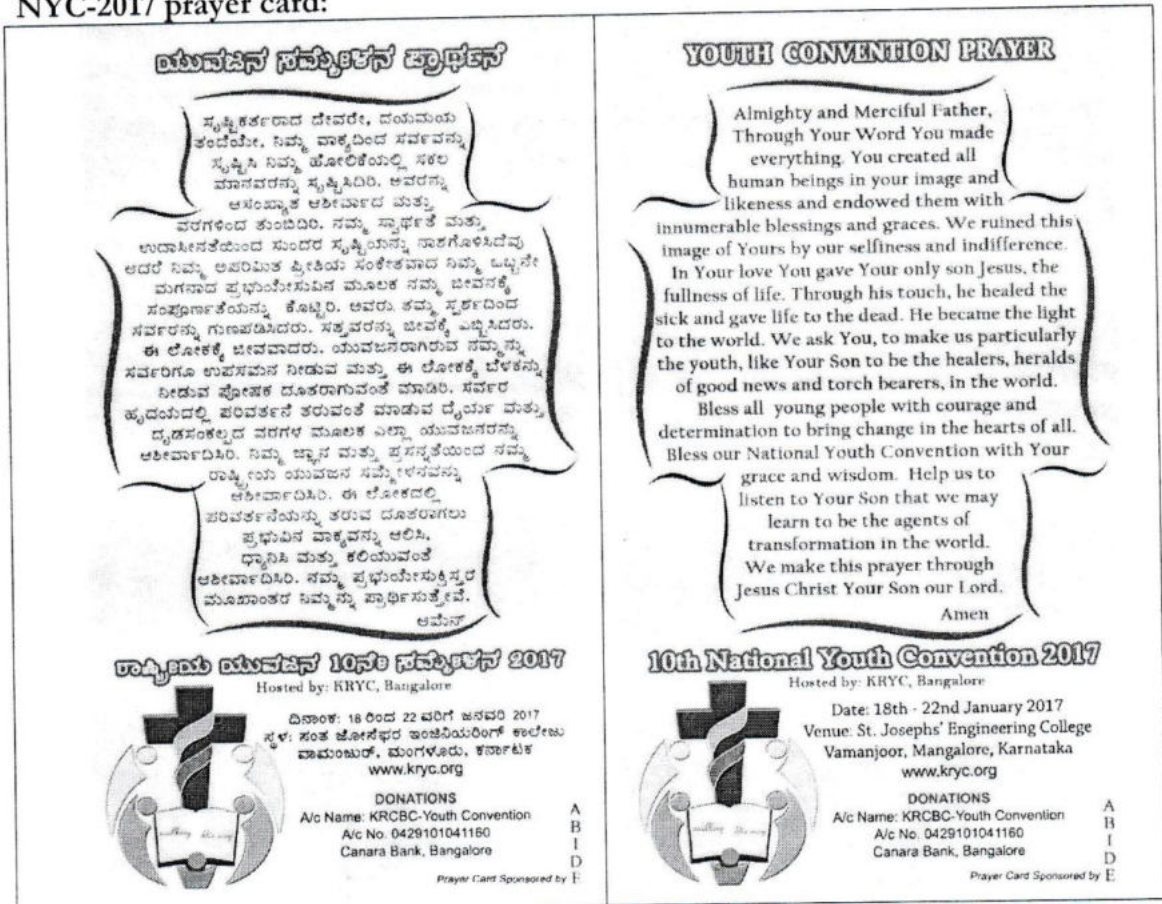 NYC-2017 prayer card:
ಯುವಜನ ಸಮ್ಮೇಳನ ಪ್ರಾರ್ಥನೆ
ಸೃಷ್ಟಿಕರ್ತರಾದ ದೇವರೇ, ದಯಮಯ
ತಂದೆಯೇ, ನಿಮ್ಮ ವಾಕ್ಯದಿಂದ ಸರ್ವವನ್ನು
ಸೃಷ್ಟಿಸಿ ನಿಮ್ಮ ಹೋಲಿಕೆಯಲ್ಲಿ ಸಕಲ
ಮಾನವರನ್ನು ಸೃಷ್ಟಿಸಿದಿರಿ. ಅವರನ್ನು
ಅಸಂಖ್ಯಾತ ಆಶೀರ್ವಾದ ಮತ್ತು
ವರಗಳಿಂದ ತುಂಬಿದಿರಿ. ನಮ್ಮ ಸ್ವಾರ್ಥತೆ ಮತ್ತು
ಉದಾಸೀನತೆಯಿಂದ ಸುಂದರ ಸೃಷ್ಟಿಯನ್ನು ನಾಶಗೊಳಿಸಿದೆವು
ಆದರೆ ನಿಮ್ಮ ಅಪರಿಮಿತ ಪ್ರೀತಿಯ ಸಂಕೇತವಾದ ನಿಮ್ಮ ಒಬ್ಬನೇ
ಮಗನಾದ ಪ್ರಭುಯೇಸುವಿನ ಮೂಲಕ ನಮ್ಮ ಜೀವನಕ್ಕೆ
ಸಂಪೂರ್ಣತೆಯನ್ನು ಕೊಟ್ಟಿರಿ. ಅವರು ತಮ್ಮ ಸ್ಪರ್ಶದಿಂದ
ಸರ್ವರನ್ನು ಗುಣಪಡಿಸಿದರು. ಸತ್ತವರನ್ನು ಜೀವಕ್ಕೆ ಎಬ್ಬಿಸಿದರು.
ಈ ಲೋಕಕ್ಕೆ ಜೀವವಾದರು. ಯುವಜನರಾಗಿರುವ ನಮ್ಮನ್ನು
ಸರ್ವರಿಗೂ ಉಪಸಮನ ನೀಡುವ ಮತ್ತು ಈ ಲೋಕಕ್ಕೆ ಬೆಳಕನ್ನು
ನೀಡುವ ಪೋಷಕ ದೂತರಾಗುವಂತೆ ಮಾಡಿರಿ. ಸರ್ವರ
ಹೃದಯದಲ್ಲಿ ಪರಿವರ್ತನೆ ತರುವಂತೆ ಮಾಡುವ ಧೈರ್ಯ ಮತ್ತು
ದೃಡಸಂಕಲ್ಪದ ವರಗಳ ಮೂಲಕ ಎಲ್ಲಾ ಯುವಜನರನ್ನು
ಆಶೀರ್ವಾದಿಸಿರಿ. ನಿಮ್ಮ ಜ್ಞಾನ ಮತ್ತು ಪ್ರಸನ್ನತೆಯಿಂದ ನಮ್ಮ
ರಾಷ್ಟ್ರೀಯ ಯುವಜನ ಸಮ್ಮೇಳನವನ್ನು
ಆಶೀರ್ವಾದಿಸಿರಿ. ಈ ಲೋಕದಲ್ಲಿ
ಪರಿವರ್ತನೆಯನ್ನು ತರುವ ದೂತರಾಗಲು
ಪ್ರಭುವಿನ ವಾಕ್ಯವನ್ನು ಆಲಿಸಿ,
ಧ್ಯಾನಿಸಿ ಮತ್ತು ಕಲಿಯುವಂತೆ
ಆಶೀರ್ವಾದಿಸಿರಿ. ನಮ್ಮ ಪ್ರಭುಯೇಸುಕ್ರಿಸ್ತರ
ಮೂಖಾಂತರ ನಿಮ್ಮನ್ನು ಪ್ರಾರ್ಥಿಸುತ್ತೇವೆ.
ಆಮೆನ್
ರಾಷ್ಟ್ರೀಯ ಯುವಜನ 10ನೇ ಸಮ್ಮೇಳನ 2017
Hosted by: KRYC, Bangalore
ದಿನಾಂಕ: 18 ರಿಂದ 22 ವರೆಗೆ ಜನವರಿ 2017
ಸ್ಥಳ: ಸಂತ ಜೋಸೆಫರ ಇಂಜಿನಿಯರಿಂಗ್ ಕಾಲೇಜು
ವಾಮಂಜುರ್, ಮಂಗಳೂರು, ಕರ್ನಾಟಕ
www.kryc.org
DONATIONS
A/c Name: KRCBC-Youth Convention
A/c No. 0429101041160
Canara Bank, Bangalore
Prayer Card Sponsored by
ABIDE
YOUTH CONVENTION PRAYER
Almighty and Merciful Father,
Through Your Word You made
everything. You created all
human beings in your image and
likeness and endowed them with
innumerable blessings and graces. We ruined this
image of Yours by our selfiness and indifference.
In Your love You gave Your only son Jesus, the
fullness of life. Through his touch, he healed the
sick and gave life to the dead. He became the light
to the world. We ask You, to make us particularly
the youth, like Your Son to be the healers, heralds
of good news and torch bearers, in the world.
Bless all young people with courage and
determination to bring change in the hearts of all.
Bless our National Youth Convention with Your
grace and wisdom. Help us to
listen to Your Son that we may
learn to be the agents of
transformation in the world.
We make this prayer through
Jesus Christ Your Son our Lord.
Amen
10th National Youth Convention 2017
Hosted by: KRYC, Bangalore
Date: 18th - 22nd January 2017
Venue: St. Josephs' Engineering College
Vamanjoor, Mangalore, Karnataka
www.kryc.org
DONATIONS
A/c Name: KRCBC-Youth Convention
A/c No. 0429101041160
Canara Bank, Bangalore
Prayer Card Sponsored by
ABIDE